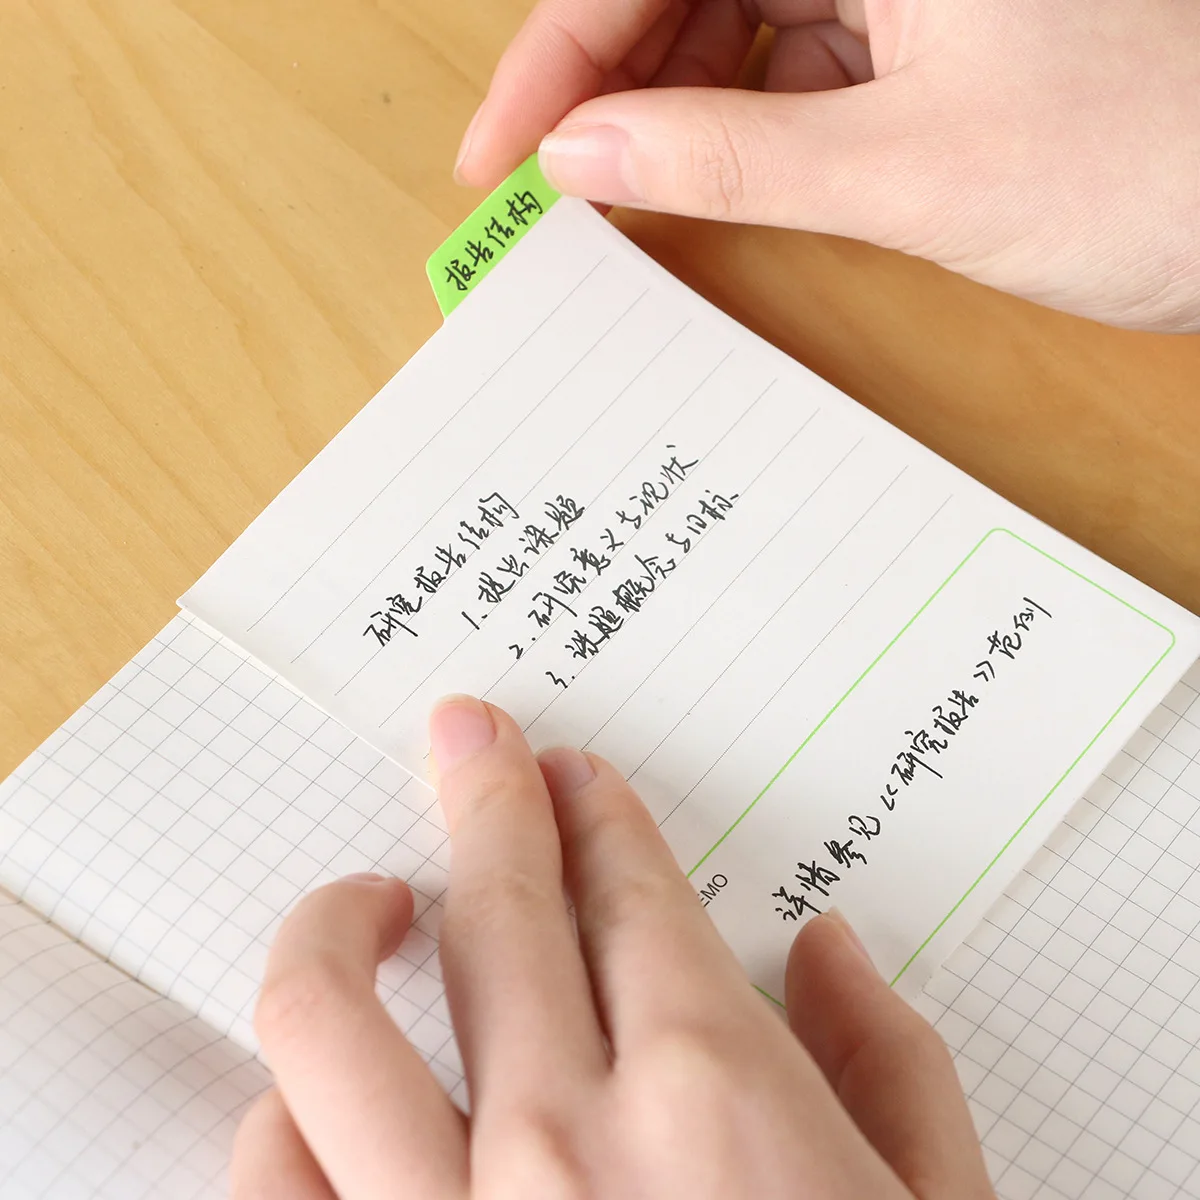 报告结构
研究报告结构
1. 提出课题
2. 研究意义与现状
3. 课题概念与目标
EMO
详情参见《研究报告》范例